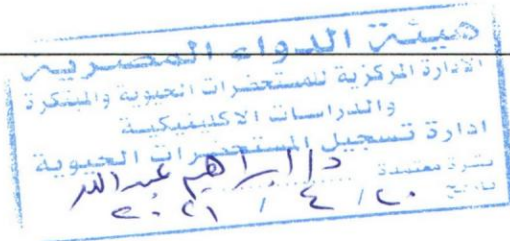 هيئة الدواء المصرية
الادارة المركزية للمستحضرات الحيوية والمبتكرة
والدراسات الاكلينيكية
ادارة تسجيل المستحضرات الحيوية
نشرة معتمدة د/ ابراهيم عبدالله
تاريخ ٢٠ / ٤ / ٢٠٢١